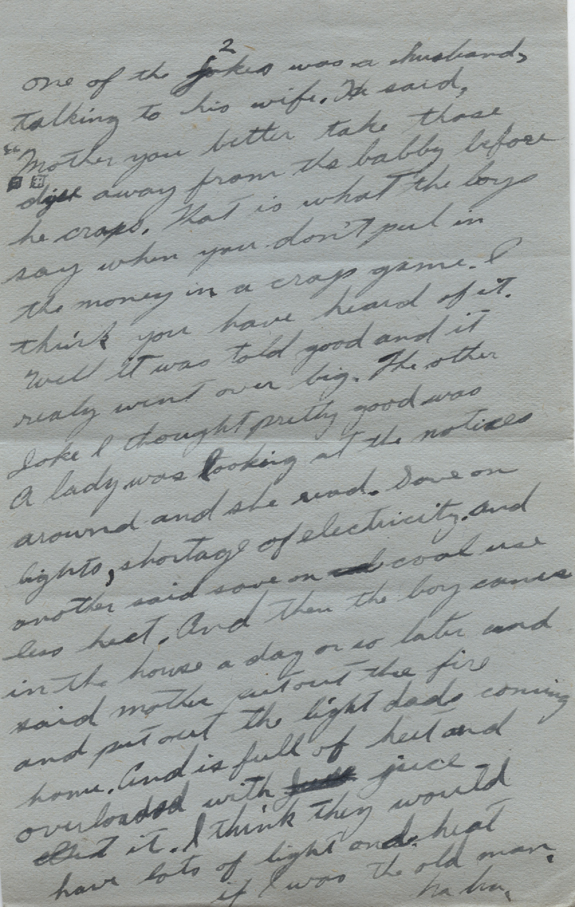 2
one of the jokes was a husband,
talking to his wife. He said,
"Mother you better take those
dice away from the babby before
he craps. That is what the boys
say when you don't put in
the money in a crap game. I
think you have heard of it.
Well it was told good and it
realy went over big. The other
Joke I thought pretty good was
A lady was looking at the notices
around and she read. Save on
lights, shortage of electricity. and
another said save on coal use
less heet. And then the boy comes
in the house a day or so later and
said mother put out the fire
and put out the light dads coming
home. And is full of heet and
overloaded with juice
it. I think they would
have lots of light and heat
if I was the old man.
ha ha.